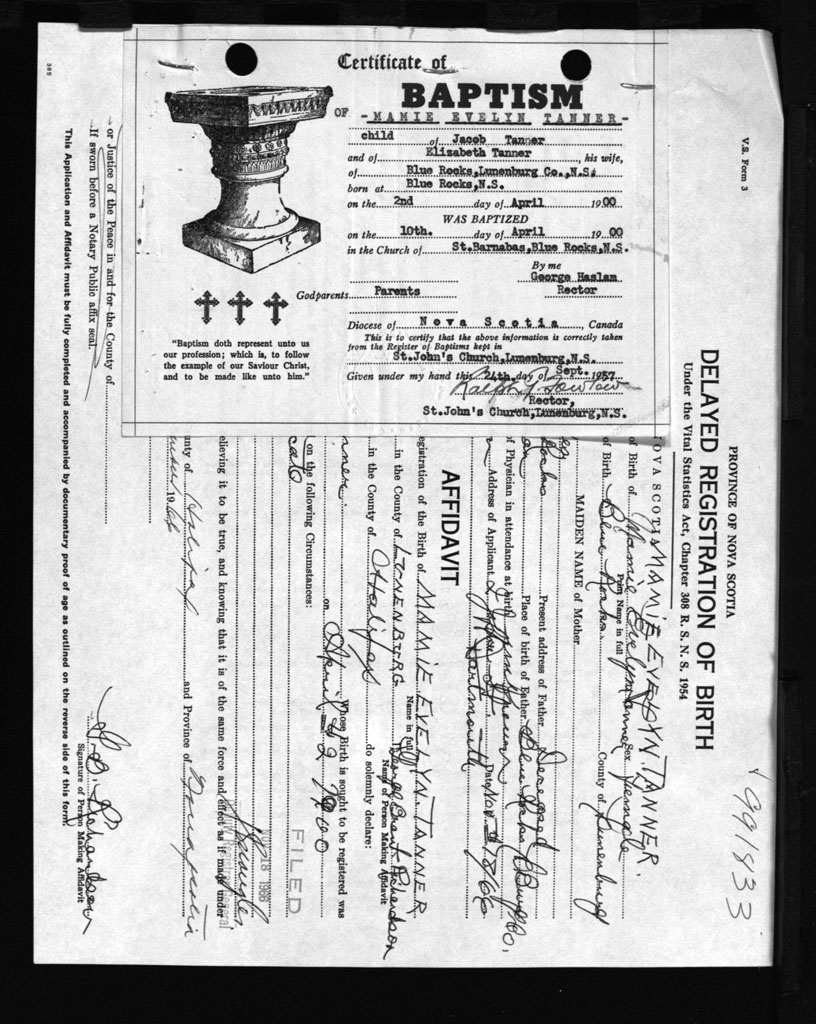 Certificate of
BAPTISM
OF -MAMIE EVELYN TANNER-
child of Jacob Tanner
and of Elizabeth Tanner, his wife,
of Blue Rocks,Lunenburg Co.,N.S.
born at Blue Rocks,N.S.
on the 2nd day of April 1900
WAS BAPTIZED
on the 10th. day of April 1900
in the Church of St.Barnabas,Blue Rocks,N.S.
By me
George Haslam
Godparents Parents Rector
Diocese of Nova Scotia, Canada
This is to certify that the above information is correctly taken
from the Register of Baptisms kept in
St.John's Church,Lunenburg,N.S.
Given under my hand this 24th. day of Sept. 1957
Rector,
St.John's Church,Lunenburg,N.S.
"Baptism doth represent unto us
our profession; which is, to follow
the example of our Saviour Christ,
and to be made like unto him."
V.S. Form 3
991833
PROVINCE OF NOVA SCOTIA
DELAYED REGISTRATION OF BIRTH
Under the Vital Statistics Act, Chapter 308 R. S. N. S. 1954
NOVA SCOTIA MAMIE EVELYN TANNER.
Print Name in full
of Birth Mamie Evelyn Tanner Sex Female
of Birth Blue Rocks County of Lunenburg
MAIDEN NAME of Mother
Present address of Father Deceased
Rocks Place of birth of Father Blue Rocks
of Physician in attendance at birth
Address of Applicant Dartmouth Date Nov 1966
AFFIDAVIT
egistration of the Birth of MAMIE EVELYN TANNER
Name in full
in the County of LUNENBURG
Name of Person Making Affidavit
in the County of Halifax do solemnly declare:
nner. Whose Birth is sought to be registered was
on April 2 1900
on the following Circumstances:
FILED
NOV 18 1966
elieving it to be true, and knowing that it is of the same force and effect as if made under
unty of Halifax and Province of Nova Scotia
1966
Signature of Person Making Affidavit
or Justice of the Peace in and for the County of
If sworn before a Notary Public affix seal
This Application and Affidavit must be fully completed and accompanied by documentary proof of age as outlined on the reverse side of this form.